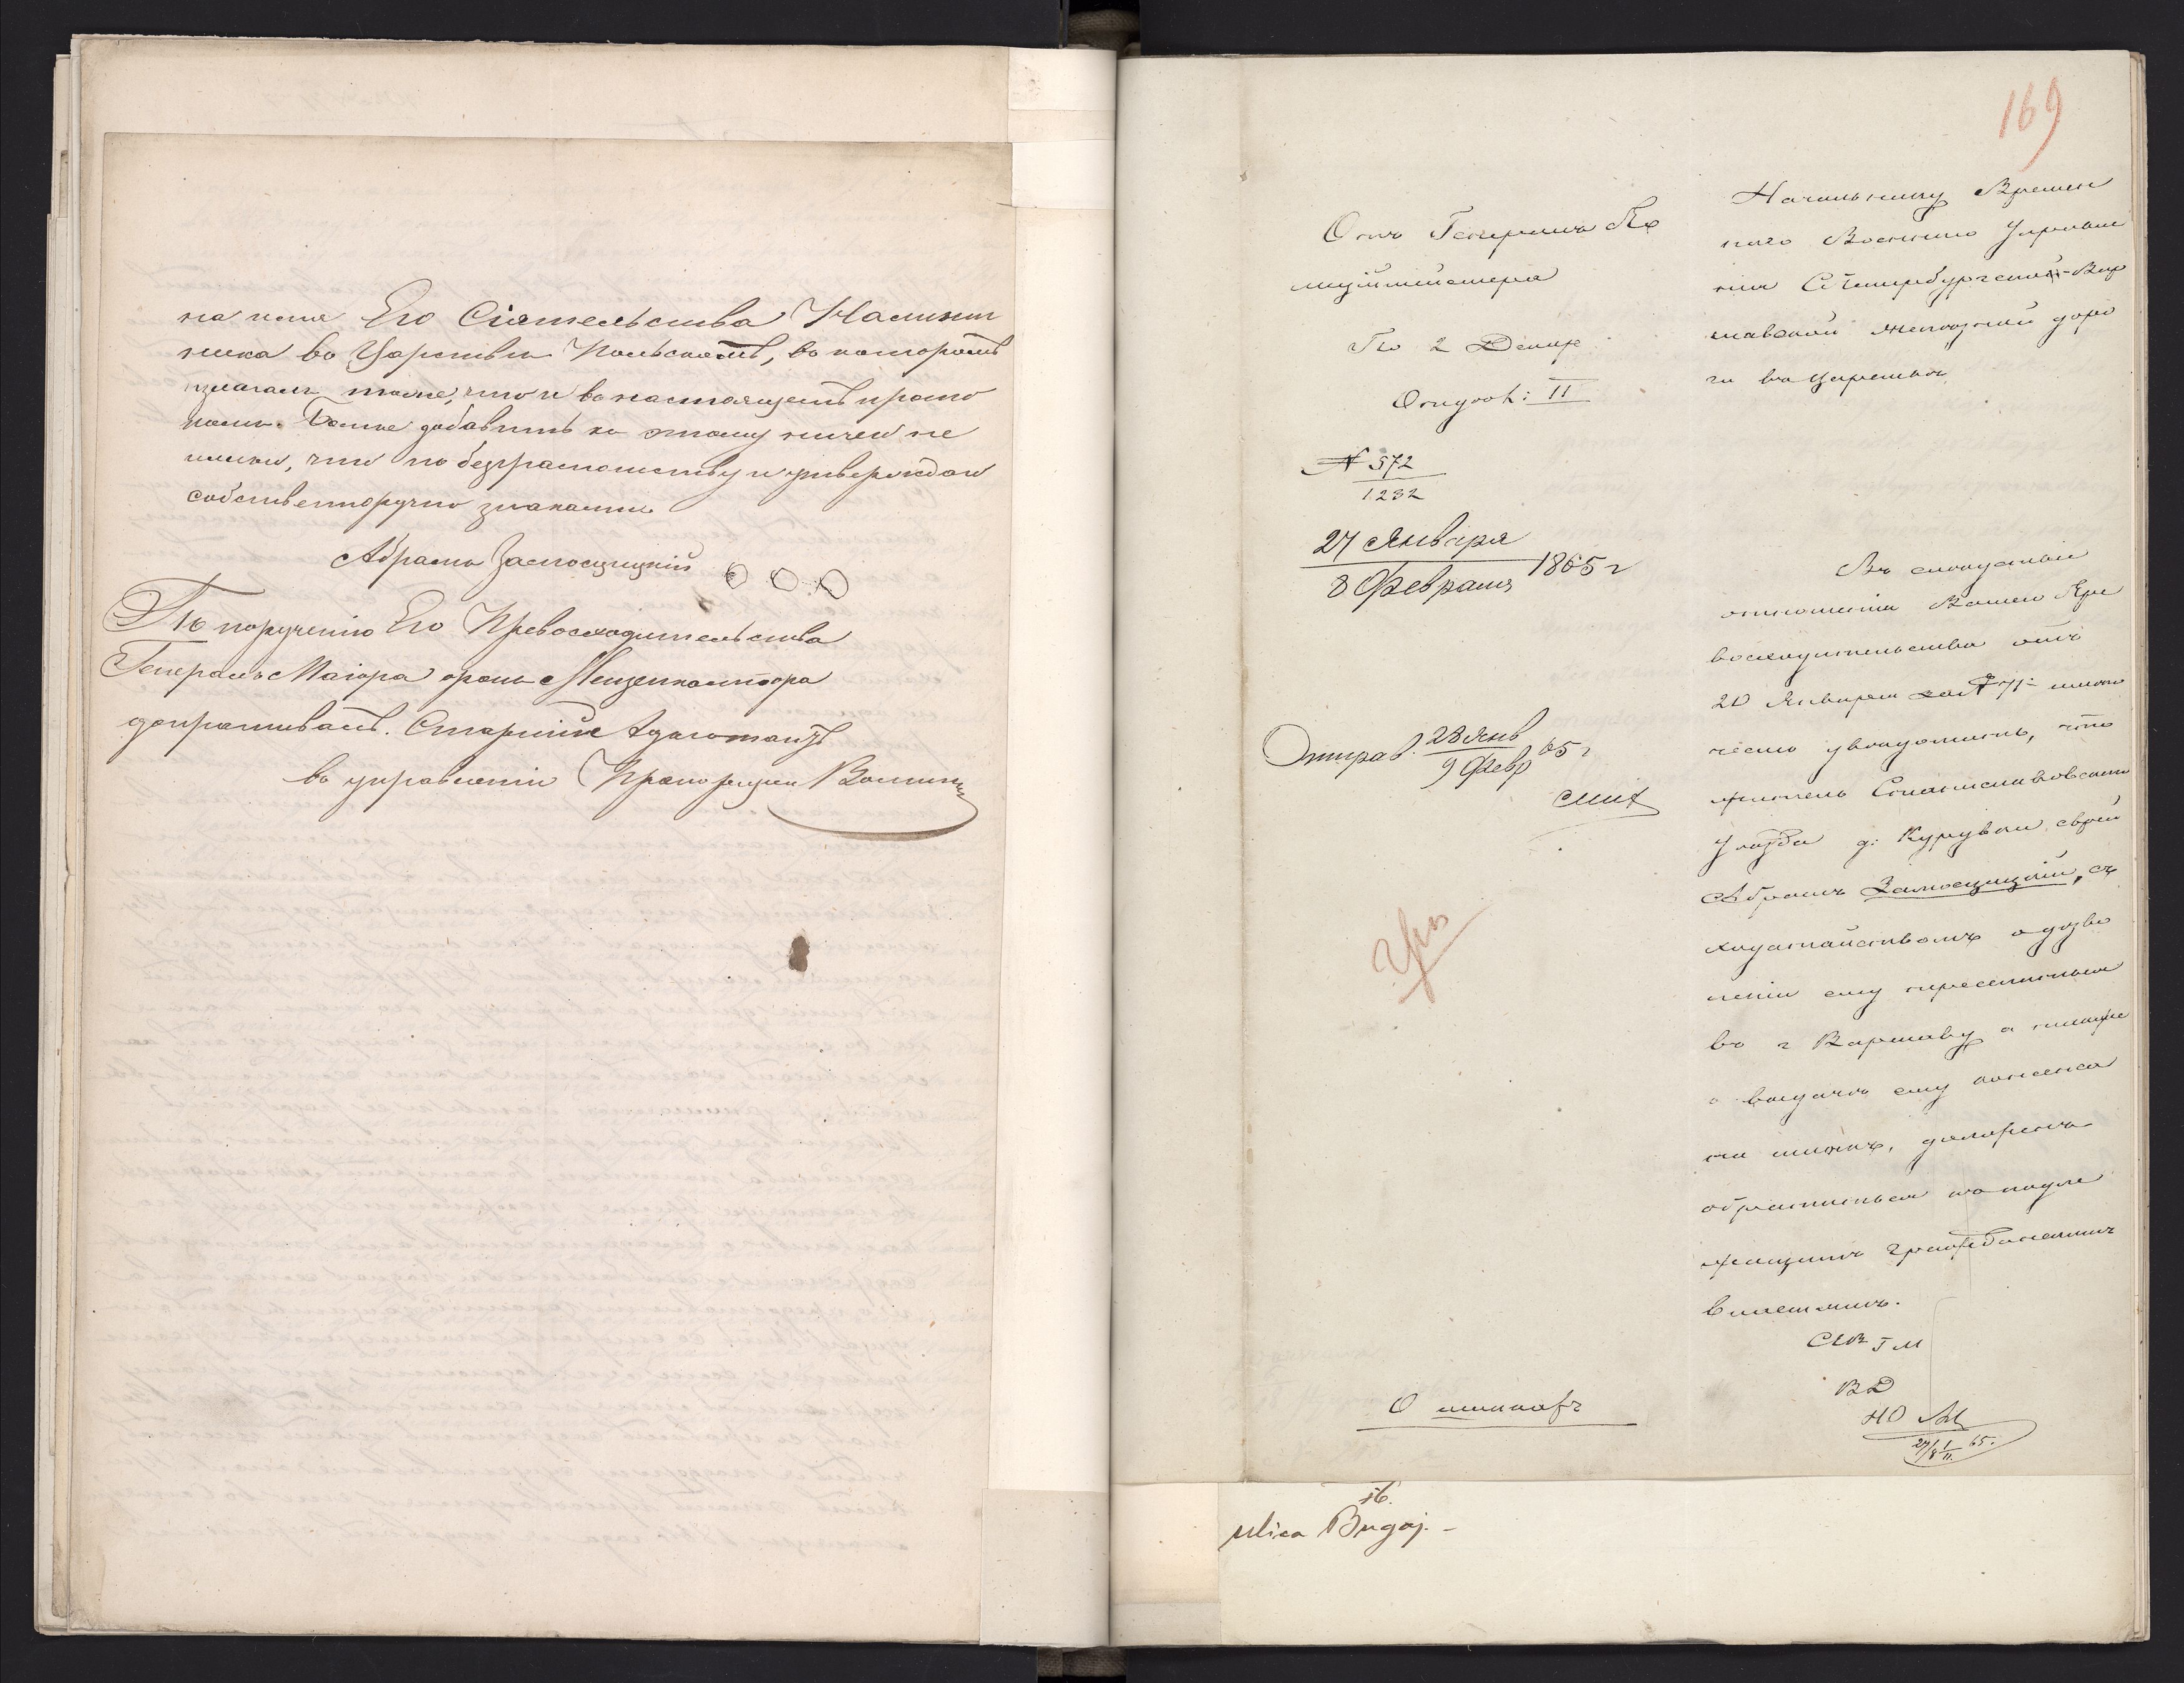 на имя Его Сіятельства Намѣстни
ника во Царствѣ Польскомъ, во которомъ
излагалъ тоже, что и во настоящемъ прото
колѣ. Болѣе добавить ко этому ничего не
имѣю, что по безграмотству и утверждаю
собственноручно знаками
Абрамъ Замосцицкій ООО
По порученію Его Превосходительства
Генералъ Маіора фонъ Мензенкампфа
допрашивалъ. Старшій Адъютантъ
во управленіи Прапорщикъ
169
Отъ Генерала По
лиціймейстера
По 2 Делопр
Отдѣл: II
№ 572
1232
27 Января
8 Февраля 1865 г
Отправ. 28 Янв
9 Февр 65 г
О шинкахъ
Начальнику Времен
наго Военнаго Управле
нія СПетербургской-Вар
шавской желѣзной доро
ги въ Царствѣ
Въ слѣдствіи
отношенія Вашего Пре
восходительства отъ
20 Января за № 71 имѣю
честь увѣдомить, что
житель Станиславовскаго
Уѣзда д: еврей
Абрамъ Замосцицкій, съ
ходатайствомъ о дозво
леніи ему переселиться
въ г Варшаву а также
о выдачѣ ему консенса
на шинкъ, долженъ
обратиться къ надле
жащимъ гражданскимъ
властямъ.
СЕВ Г М
В Д
НО
27/8 I/II 65.
16.
ulica Bugaj. -